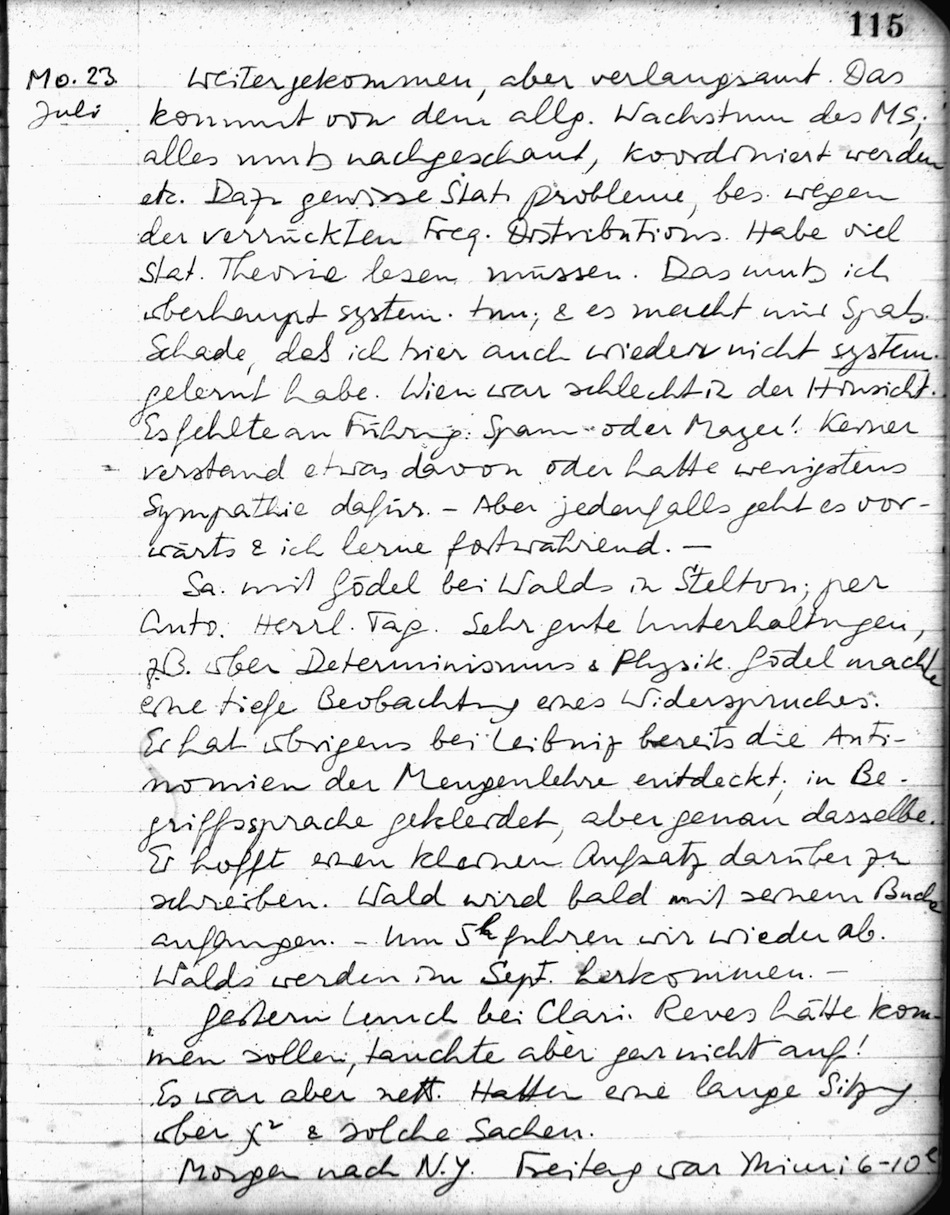 115
Mo. 23. Weitergekommen, aber verlangsamt. Das
Juli kommt von dem allg. Wachstum des MS;
alles muß nachgeschaut, koordiniert werden
etc. Dazu gewisse Stat. probleme, bes. wegen
der verrückten Freq. Distributions. Habe viel
Stat. Theorie lesen müssen. Das muß ich
überhaupt system. tun; & es macht mir Spaß.
Schade, daß ich hier auch wieder nicht system.
gelernt habe. Wien war schlecht in der Hinsicht.
Es fehlte an Führung. Spann oder Mayer! Keiner
verstand etwas davon oder hatte wenigstens
Sympathie dafür. – Aber jedenfalls geht es vor-
wärts & ich lerne fortwährend. —
Sa. mit Gödel bei Walds in Stelton; per
Auto. Herrl. Tag. Sehr gute Unterhaltungen,
z.B. über Determinismus & Physik. Gödel machte
eine tiefe Beobachtung eines Widerspruches.
Er hat übrigens bei Leibniz bereits die Anti-
nomien der Mengenlehre entdeckt; in Be-
griffssprache gekleidet, aber genau dasselbe.
Er hofft einen kleinen Aufsatz darüber zu
schreiben. Wald wird bald mit seinem Buche
anfangen. – Um 5h fuhren wir wieder ab.
Walds werden im Sept. herkommen. –
Gestern Lunch bei Clari. Reves hätte kom-
men sollen, tauchte aber gar nicht auf!
Es war aber nett. Hatten eine lange Sitzung
über χ² & solche Sachen.
Morgen nach N.Y. Freitag war Mimi 6-10